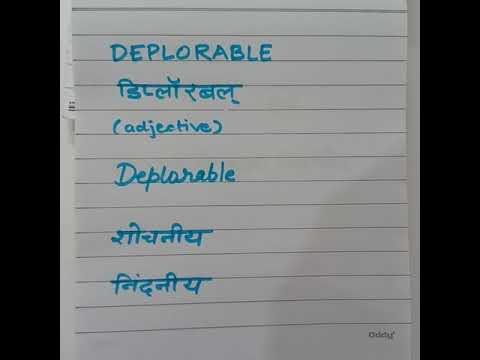 DEPLORABLE
डिप्लॉरबल्
(adjective)
Deplorable
शोचनीय
निंदनीय
Oddy